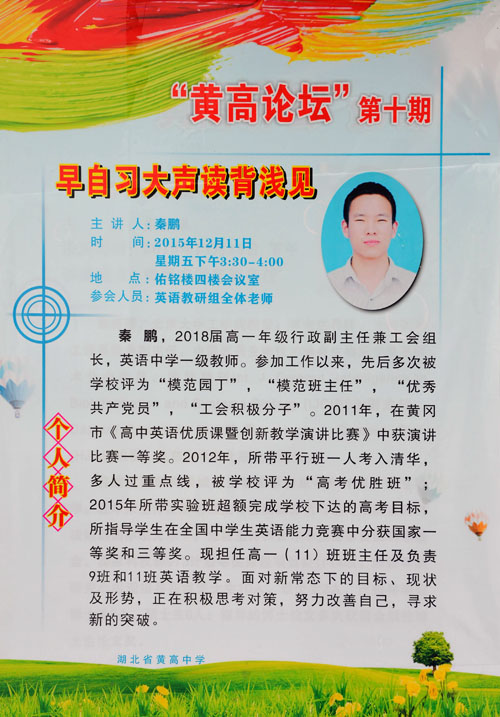 “黄高论坛”第十期
早自习大声读背浅见
主 讲 人：秦鹏
时 间：2015年12月11日
星期五下午3:30-4:00
地 点：佑铭楼四楼会议室
参会人员：英语教研组全体老师
个人简介
秦 鹏，2018届高一年级行政副主任兼工会组
长，英语中学一级教师。参加工作以来，先后多次被
学校评为“模范园丁”，“模范班主任”，“优秀
共产党员”，“工会积极分子”。2011年，在黄冈
市《高中英语优质课暨创新教学演讲比赛》中获演讲
比赛一等奖。2012年，所带平行班一人考入清华，
多人过重点线，被学校评为“高考优胜班”；
2015年所带实验班超额完成学校下达的高考目标，
所指导学生在全国中学生英语能力竞赛中分获国家一
等奖和三等奖。现担任高一（11）班班主任及负责
9班和11班英语教学。面对新常态下的目标、现状
及形势，正在积极思考对策，努力改善自己，寻求
新的突破。
湖北省黄高中学